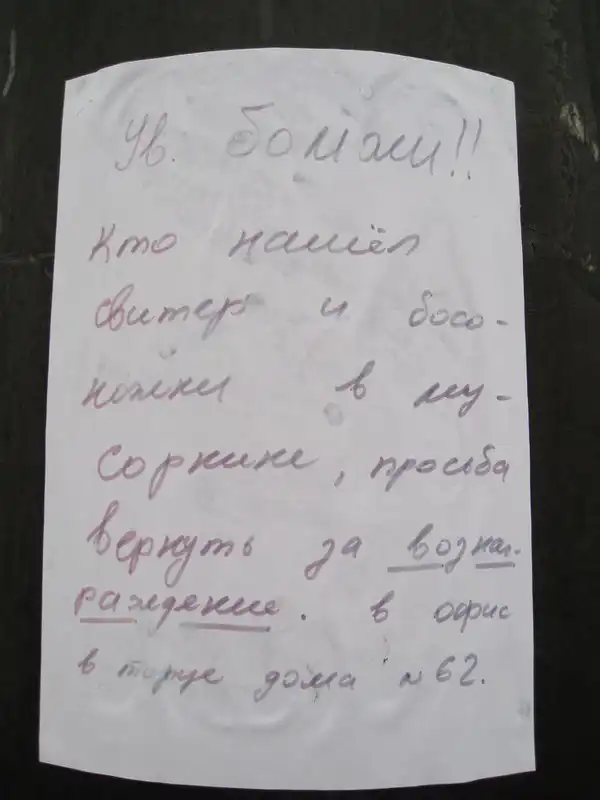 Ув. бомжи!!
Кто нашёл
свитер и босо-
ножки в му-
сорнике, просьба
вернуть за вознаг-
раждение. в офис
в торце дома №62.